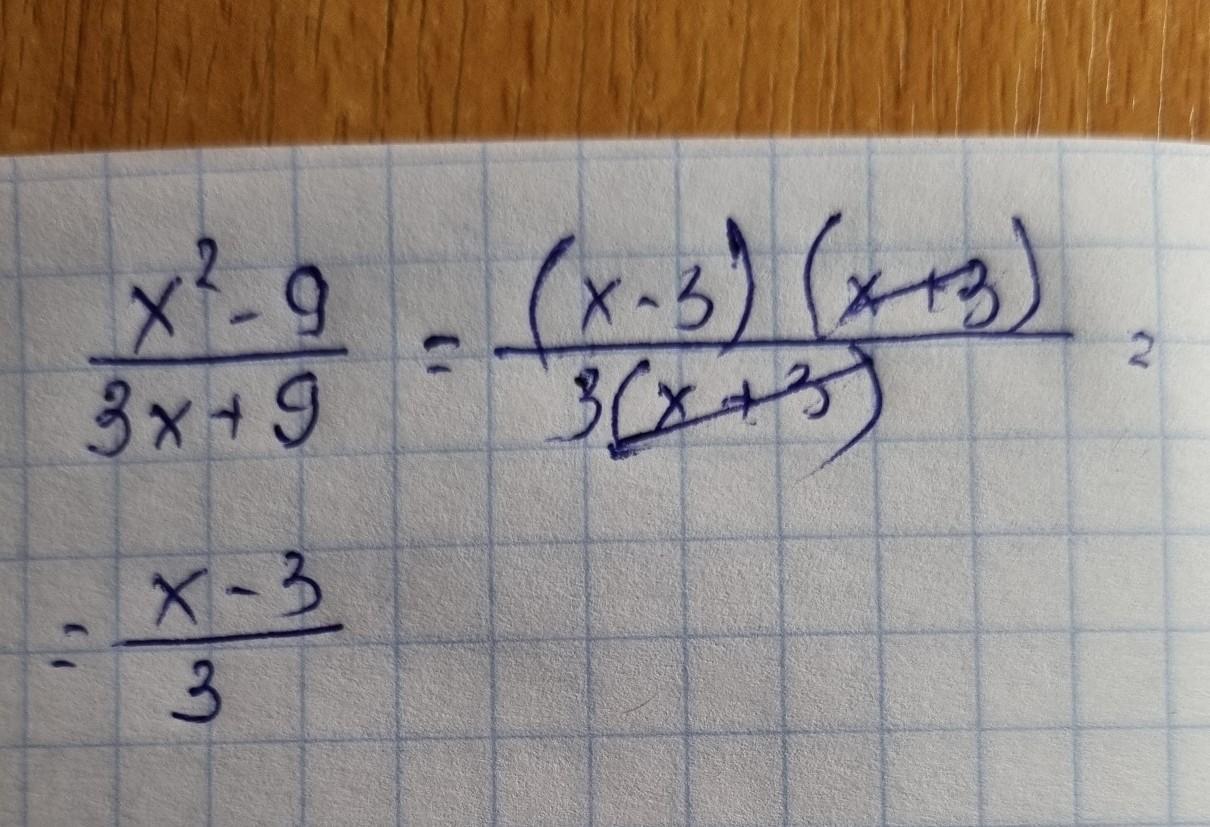 x² - 9 / 3x + 9 = (x - 3) (x + 3) / 3(x + 3) =
= x - 3 / 3